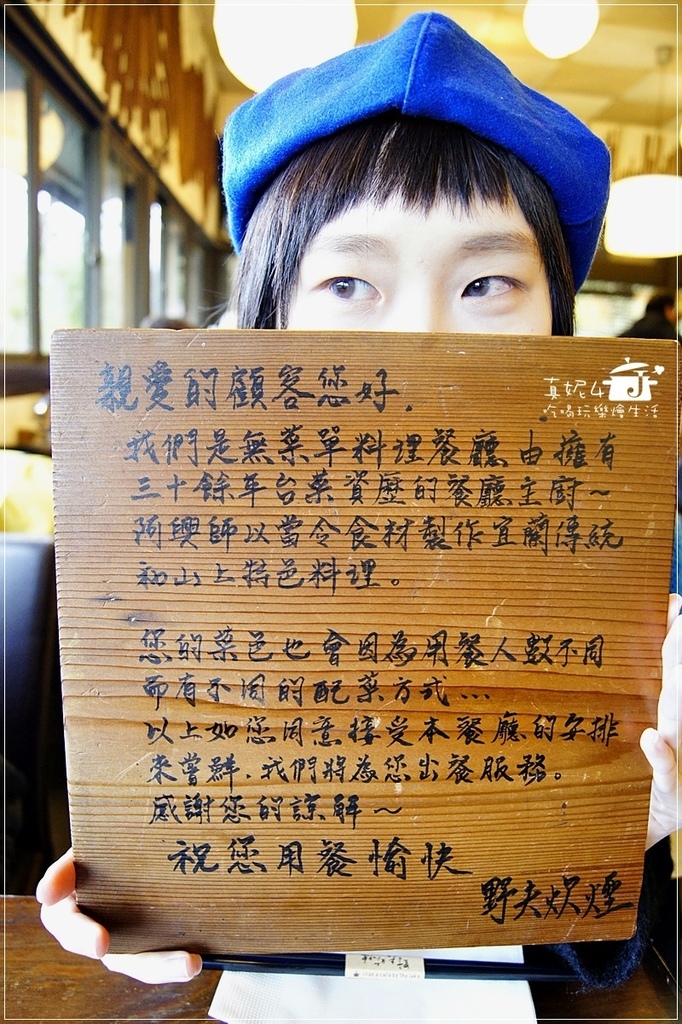 親愛的顧客您好.
真妮4
吃喝玩樂燴生活
我們是無菜單料理餐廳由擁有
三十餘年台菜資歷的餐廳主廚~
阿興師以當令食材製作宜蘭傳統
和山上特色料理。
您的菜色也會因為用餐人數不同
而有不同的配菜方式...
以上如您同意接受本餐廳的安排
來嘗鮮.我們將為您出餐服務。
感謝您的諒解~
祝您用餐愉快
野夫炊煙